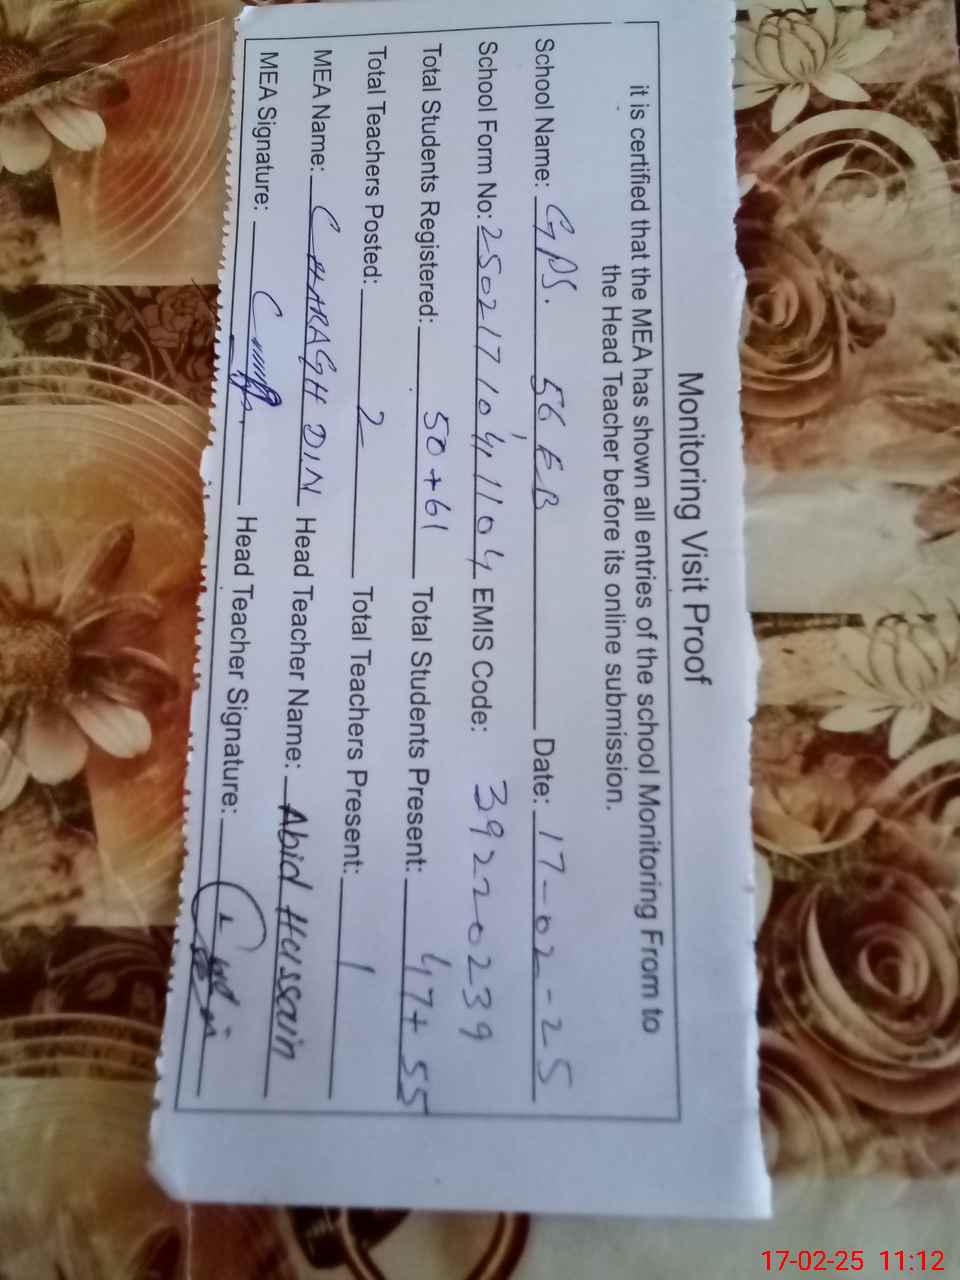 Monitoring Visit Proof
it is certified that the MEA has shown all entries of the school Monitoring From to
the Head Teacher before its online submission.
School Name: GPS. 56 EB Date: 17-02-25
School Form No: 25021710411104 EMIS Code: 39220239
Total Students Registered: 50+61 Total Students Present: 47+55
Total Teachers Posted: 2 Total Teachers Present: 1
MEA Name: CHARAGH DIN Head Teacher Name: Abid Hussain
MEA Signature: Head Teacher Signature:
17-02-25 11:12